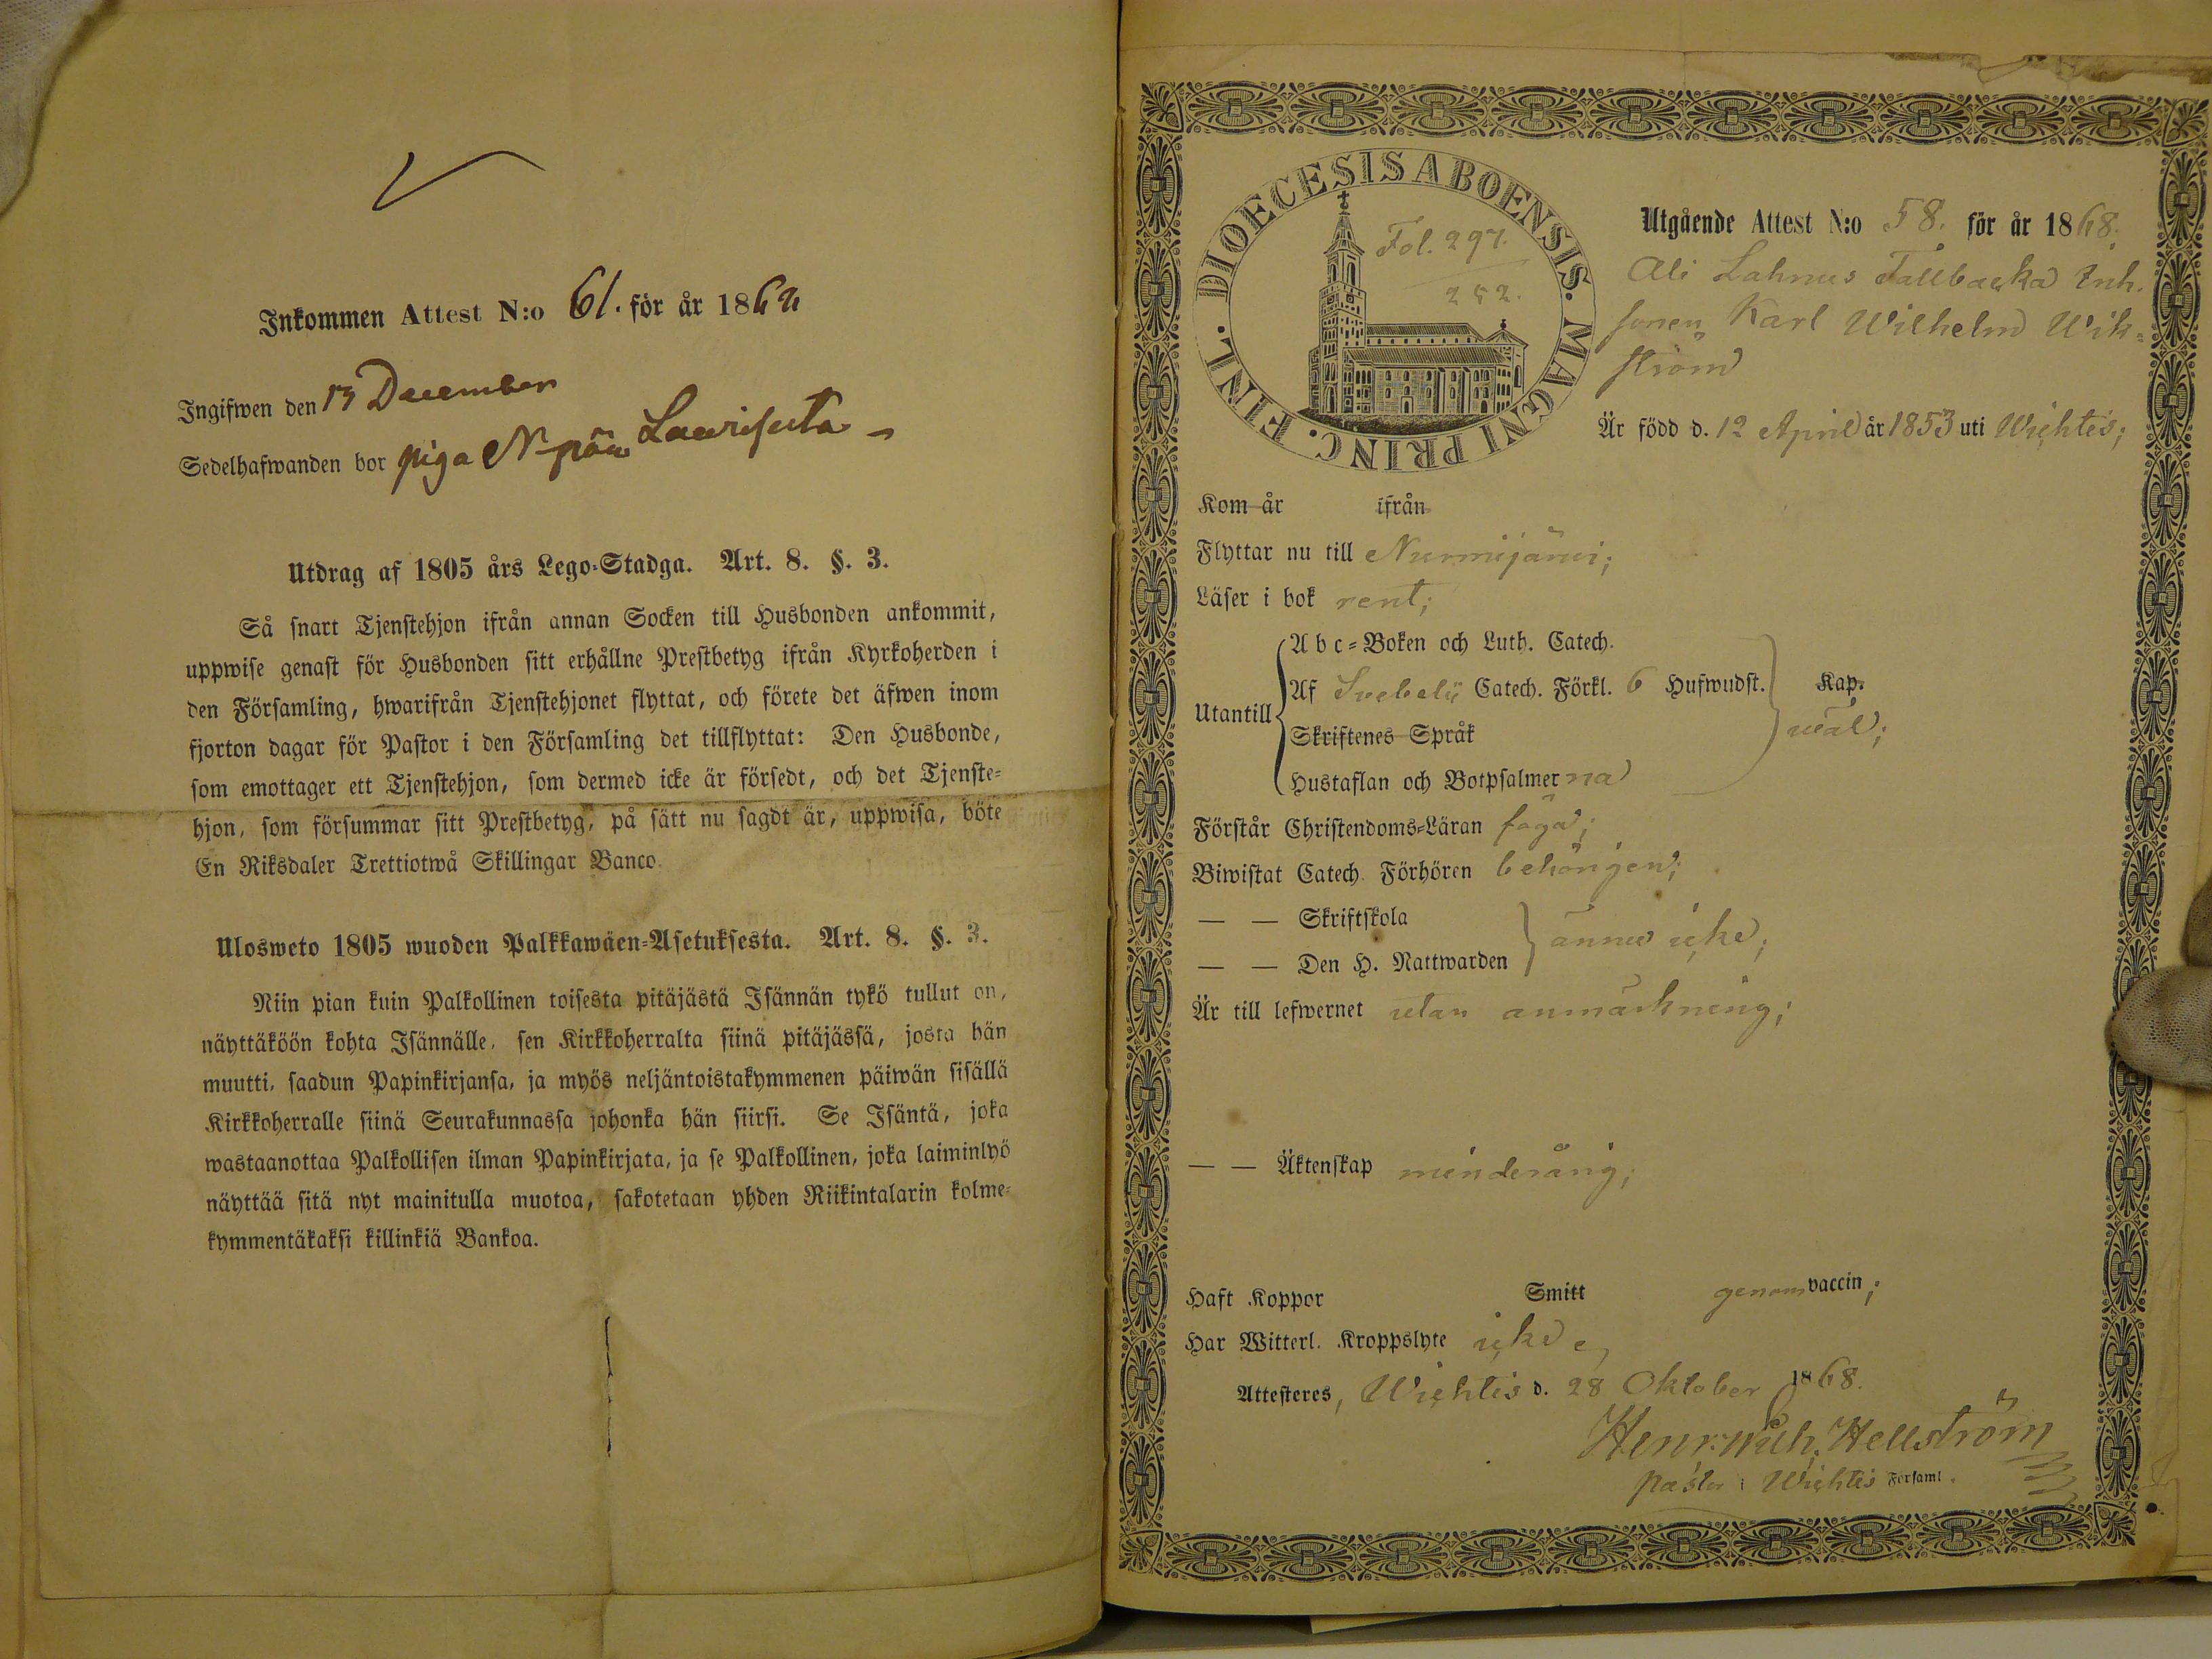 Inkommen Attest N:o 61. för år 186
Ingifwen den 13 December
Sedelhafwanden bor piga
Utdrag af 1805 års Lego-Stadga. Art. 8. §. 3.
Så snart Tjenstehjon ifrån annan Socken till Husbonden ankommit,
uppwise genast för Husbonden sitt erhållne Prestbetyg ifrån Kyrkoherden i
den Församling, hwarifrån Tjenstehjonet flyttat, och förete det äfwen inom
fjorton dagar för Pastor i den Församling det tillflyttat: Den Husbonde,
som emottager ett Tjenstehjon, som dermed icke är försedt, och det Tjenste-
hjon, som försummar sitt Prestbetyg, på sätt nu sagdt är, uppwisa, böte
En Riksdaler Trettiotwå Skillingar Banco.
Ulosweto 1805 wuoden Palkkawäen-Asetuksesta. Art. 8. §. 3.
Niin pian kuin Palkollinen toisesta pitäjästä Isännän tykö tullut on,
näyttäköön kohta Isännälle, sen Kirkkoherralta siinä pitäjässä, josta hän
muutti, saadun Papinkirjansa, ja myös neljäntoistakymmenen päiwän sisällä
Kirkkoherralle siinä Seurakunnassa johonka hän siirsi. Se Isäntä, joka
wastaanottaa Palkollisen ilman Papinkirjata, ja se Palkollinen, joka laiminlyö
näyttää sitä nyt mainitulla muotoa, sakotetaan yhden Riikintalarin kolme-
kymmentäkaksi killinkiä Bankoa.
DIOECESIS ABOENSIS. MAGNI PRINC. FINL.
Fol. 297.
252.
Utgående Attest N:o 58. för år 1868.
Lahnus Tallbacka Inh.
sonen Karl Wilhelm Wik-
ström
Är född d. 12 April år 1853 uti Wichtis;
Kom år ifrån
Flyttar nu till Nurmijärvi;
Läser i bok rent;
Utantill
A b c-Boken och Luth. Catech.
Af Svebelii Catech. Förkl. 6 Hufwudst.
Skriftenes Språk
Hustaflan och Botpsalmerna
Kap.
väl;
Förstår Christendoms-Läran föga;
Biwistat Catech. Förhören behörigen;
— — Skriftskola
— — Den H. Nattwarden
ännu icke;
Är till lefwernet utan anmärkning;
— — Äktenskap minderårig;
Haft Koppor Smitt genom vaccin;
Har Witterl. Kroppslyte icke
Attesteres, Wichtis d. 28 Oktober 1868.
Henr. Wilh. Hellström
Pastor i Wichtis Församl.